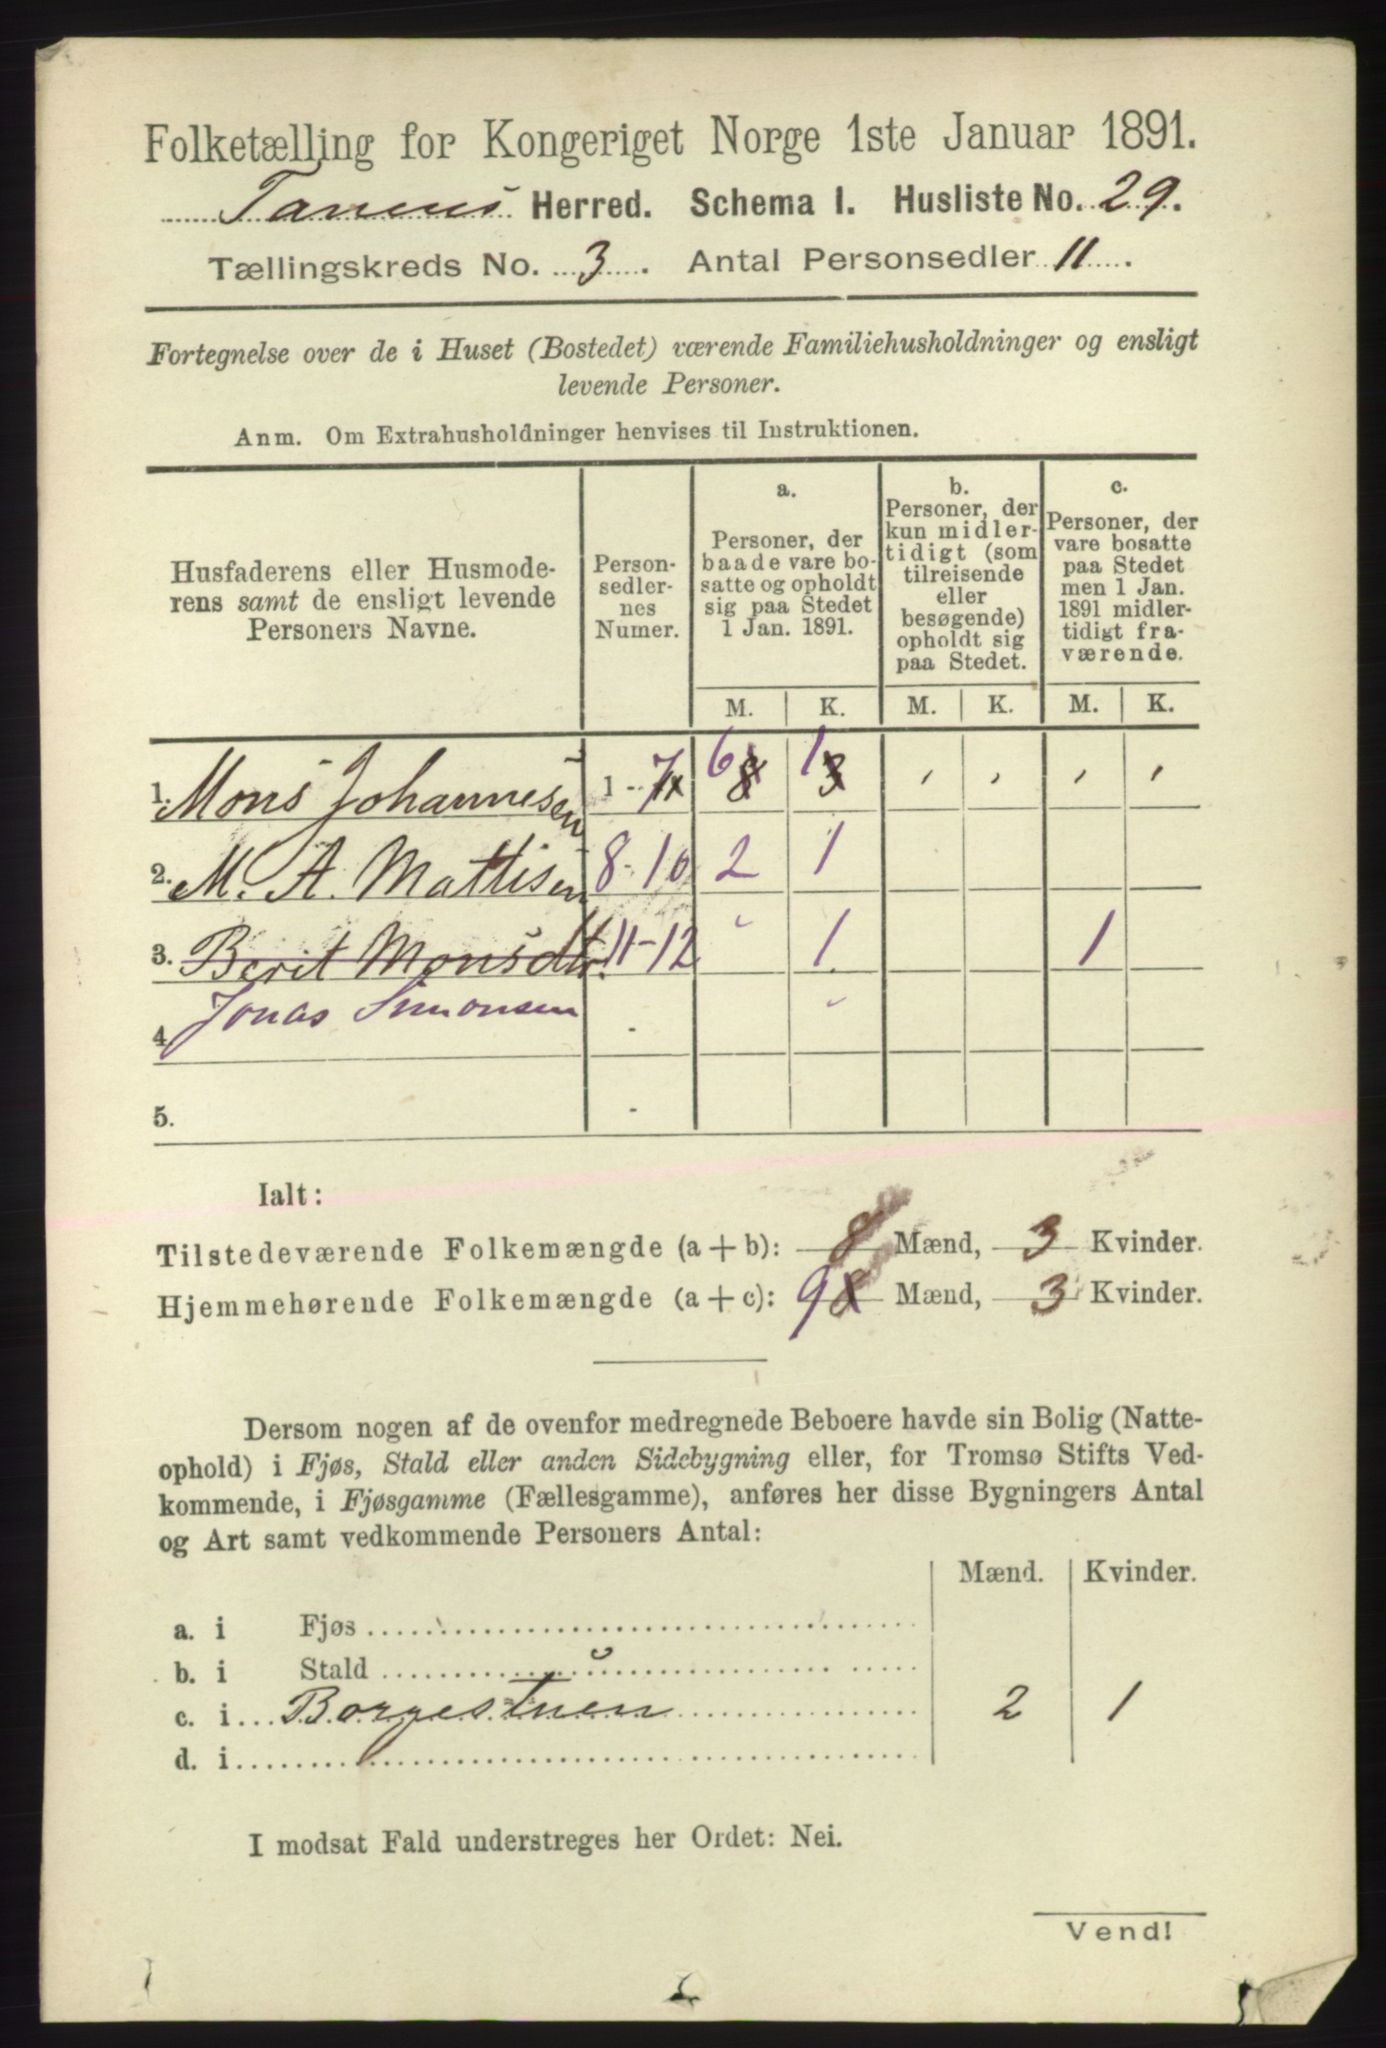 Folketælling for Kongeriget Norge 1ste Januar 1891.
Tanens Herred. Schema I. Husliste No. 29.
Tællingskreds No. 3. Antal Personsedler 11.
Fortegnelse over de i Huset (Bostedet) værende Familiehusholdninger og ensligt
levende Personer.
Anm. Om Extrahusholdninger henvises til Instruktionen.
Husfaderens eller Husmode-
rens samt de ensligt levende
Personers Navne.
Person-
sedler-
nes
Numer.
a.
Personer, der
baade vare bo-
satte og opholdt
sig paa Stedet
1 Jan. 1891.
b.
Personer, der
kun midler-
tidigt (som
tilreisende
eller
besøgende)
opholdt sig
paa Stedet.
c.
Personer, der
vare bosatte
paa Stedet
men 1 Jan.
1891 midler-
tidigt fra-
værende.
M. K. M. K. M. K.
1. Mons Johannesen 1-7 6 8 1 3
2. M. A. Mattisen 8-10 2 1
3. Berit Monsdtr. 11-12 1 1
Jonas Simonsen
4.
5.
Ialt:
Tilstedeværende Folkemængde (a+b): 8 Mænd, 3 Kvinder.
Hjemmehørende Folkemængde (a+c): 9 8 Mænd, 3 Kvinder.
Dersom nogen af de ovenfor medregnede Beboere havde sin Bolig (Natte-
ophold) i Fjøs, Stald eller anden Sidebygning eller, for Tromsø Stifts Ved-
kommende, i Fjøsgamme (Fællesgamme), anføres her disse Bygningers Antal
og Art samt vedkommende Personers Antal:
Mænd. Kvinder.
a. i Fjøs
b. i Stald
c. i Borgestuen 2 1
d. i
I modsat Fald understreges her Ordet: Nei.
Vend!